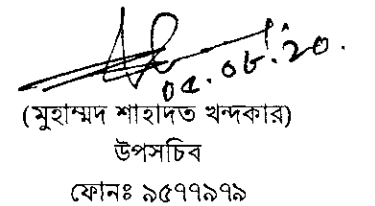 ০৫.০৮.২০.
(মুহাম্মদ শাহাদত খন্দকার)
উপসচিব
ফোনঃ ৯৫৭৭৯৭৯